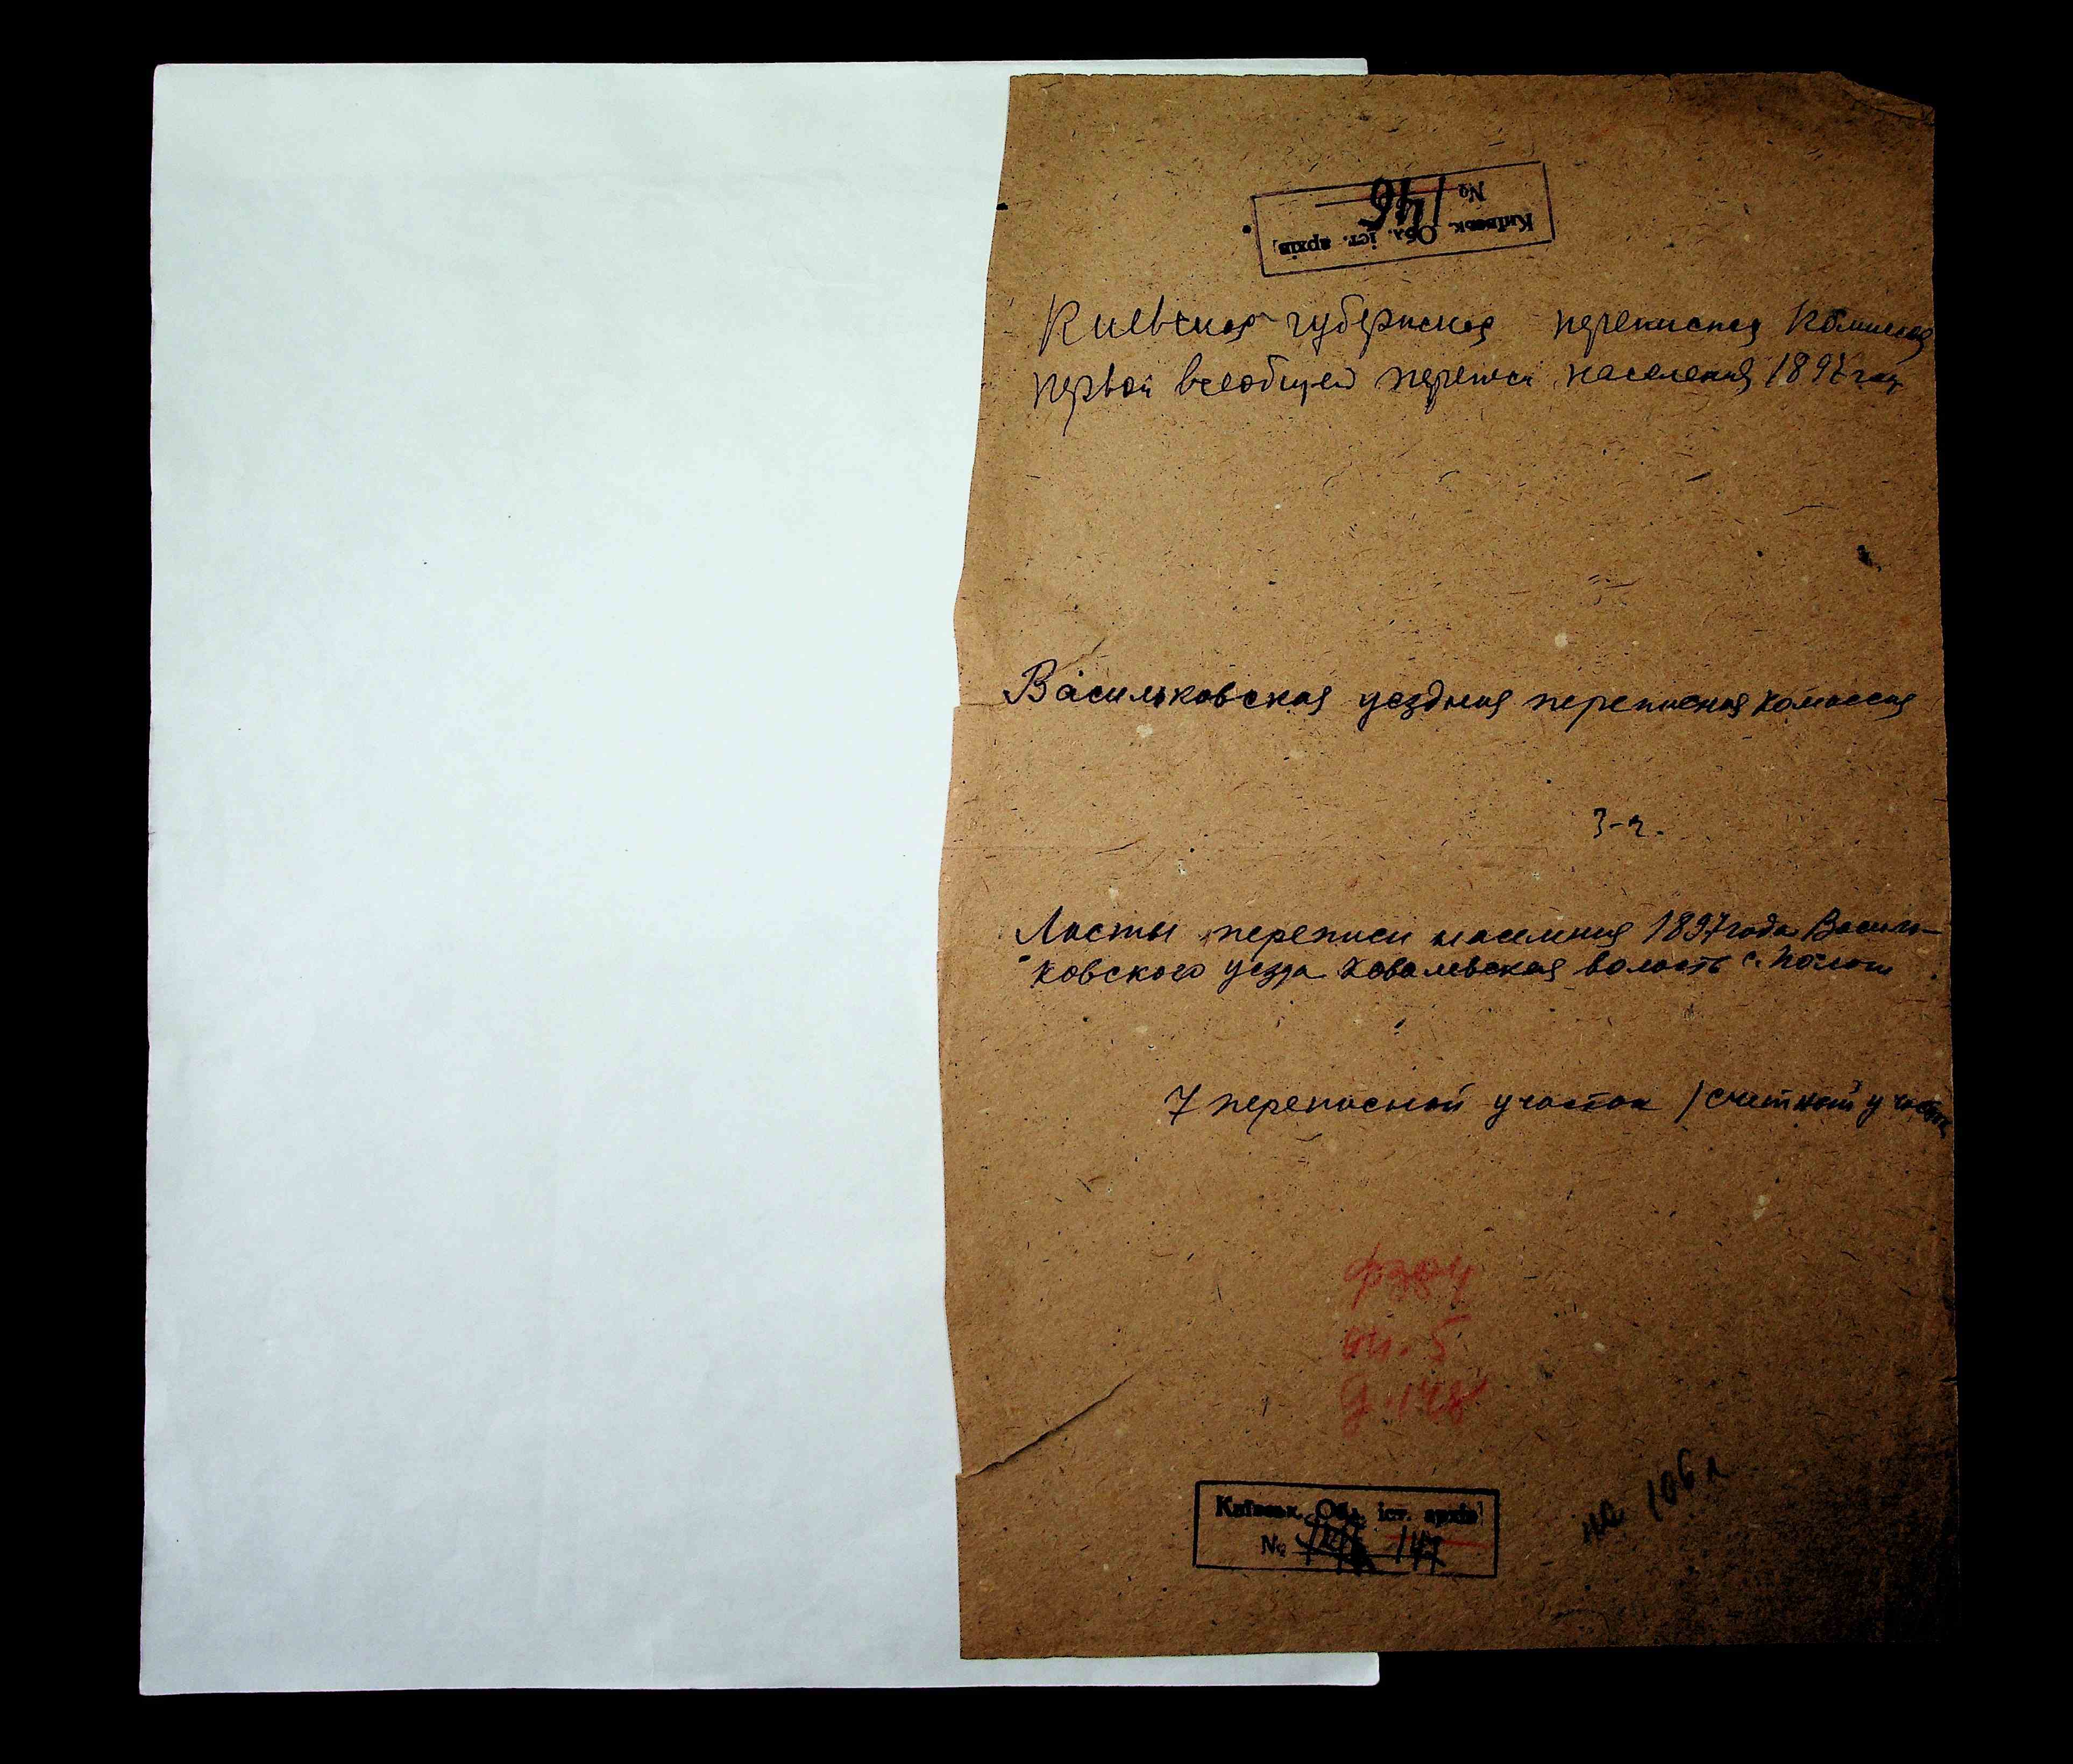 Київськ. Обл. іст. архів
№ 146
Киевская губернская переписная комиссия
первой всеобщей переписи населения 1897 года
Васильковская уездная переписная комиссия
3-ч.
Листы переписи населения 1897 года Василь-
ковского уезда Ковалевская волость с.
7 переписной участок 1 счетный участок
ф 384
оп. 5
д. 148
Київськ. Обл. іст. архів
№ 147
на 106 л